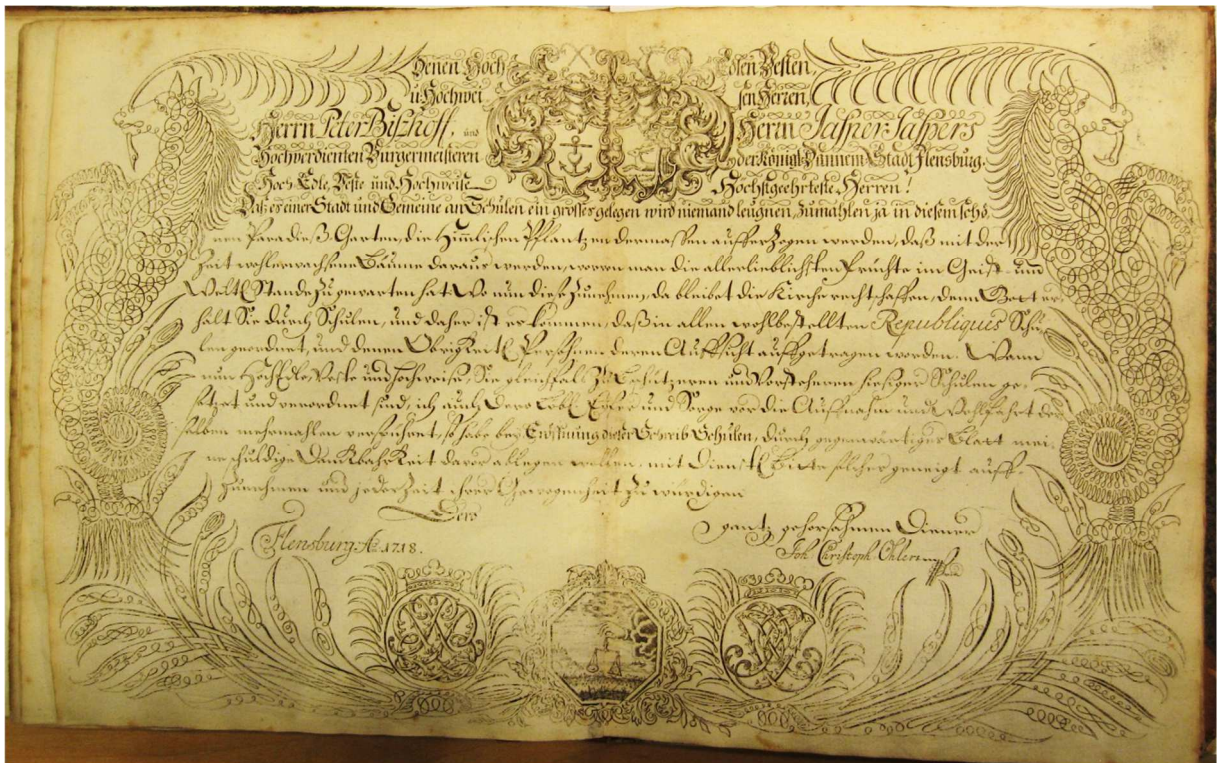 Denen Hoch Edlen Vesten,
u. Hochwei sen Herren,
Herrn Peter Bischoff, und Herrn Jasper Jaspers
Hochverdienten Burgermeisteren der Königl. Dännem. Stadt Flensburg.
Hoch Edle, Veste und Hochweise Höchstgeehrteste Herren!
Daß es einer Stadt und Gemeine an Schulen ein grosses gelegen wird niemand leugnen, zumahlen ja in diesem schö
nen Paradieß Garten, die Himlischen Pflantzen dermassen aufferzogen werden, daß mit der
Zeit wohlerwachsene Bäume daraus werden, worvon man die allerlieblichsten Früchte im Geist- und
Weltl. Stande zu gewarten hat. Wo nun diese zunehmen, da bleibet die Kirche rechtschaffen, denn Gott er-
hält Sie durch Schulen, und daher ist es kommen, daß in allen wohlbestellten Republiques Schu-
len geordnet, und denen Obrigkeitl. Persohnen deren Auffsicht auffgetragen worden. Wann
nun HochEdle, Veste und Hochweise, Sie gleichfals zu Besitzeren und Vorsteheren hiesiger Schulen ge-
setzet und verordnet sind, ich auch Dero Löbl. Eyfer und Sorge vor die Auffnahm und Wohlfahrt der
selben mehrmahlen verspühret, so habe bey Eröffnung dieser Schreib Schulen, durch gegenwärtiges Blatt mei-
ne schuldige Danckbahrkeit davor ablegen wollen, mit Dienstl. Bitte solches geneigt auff-
zunehmen und jederzeit ihrer Gewogenheit zu würdigen
Dero gantz gehorsahmen Diener
Flensburg Aō. 1718. Joh. Christoph Öhlers